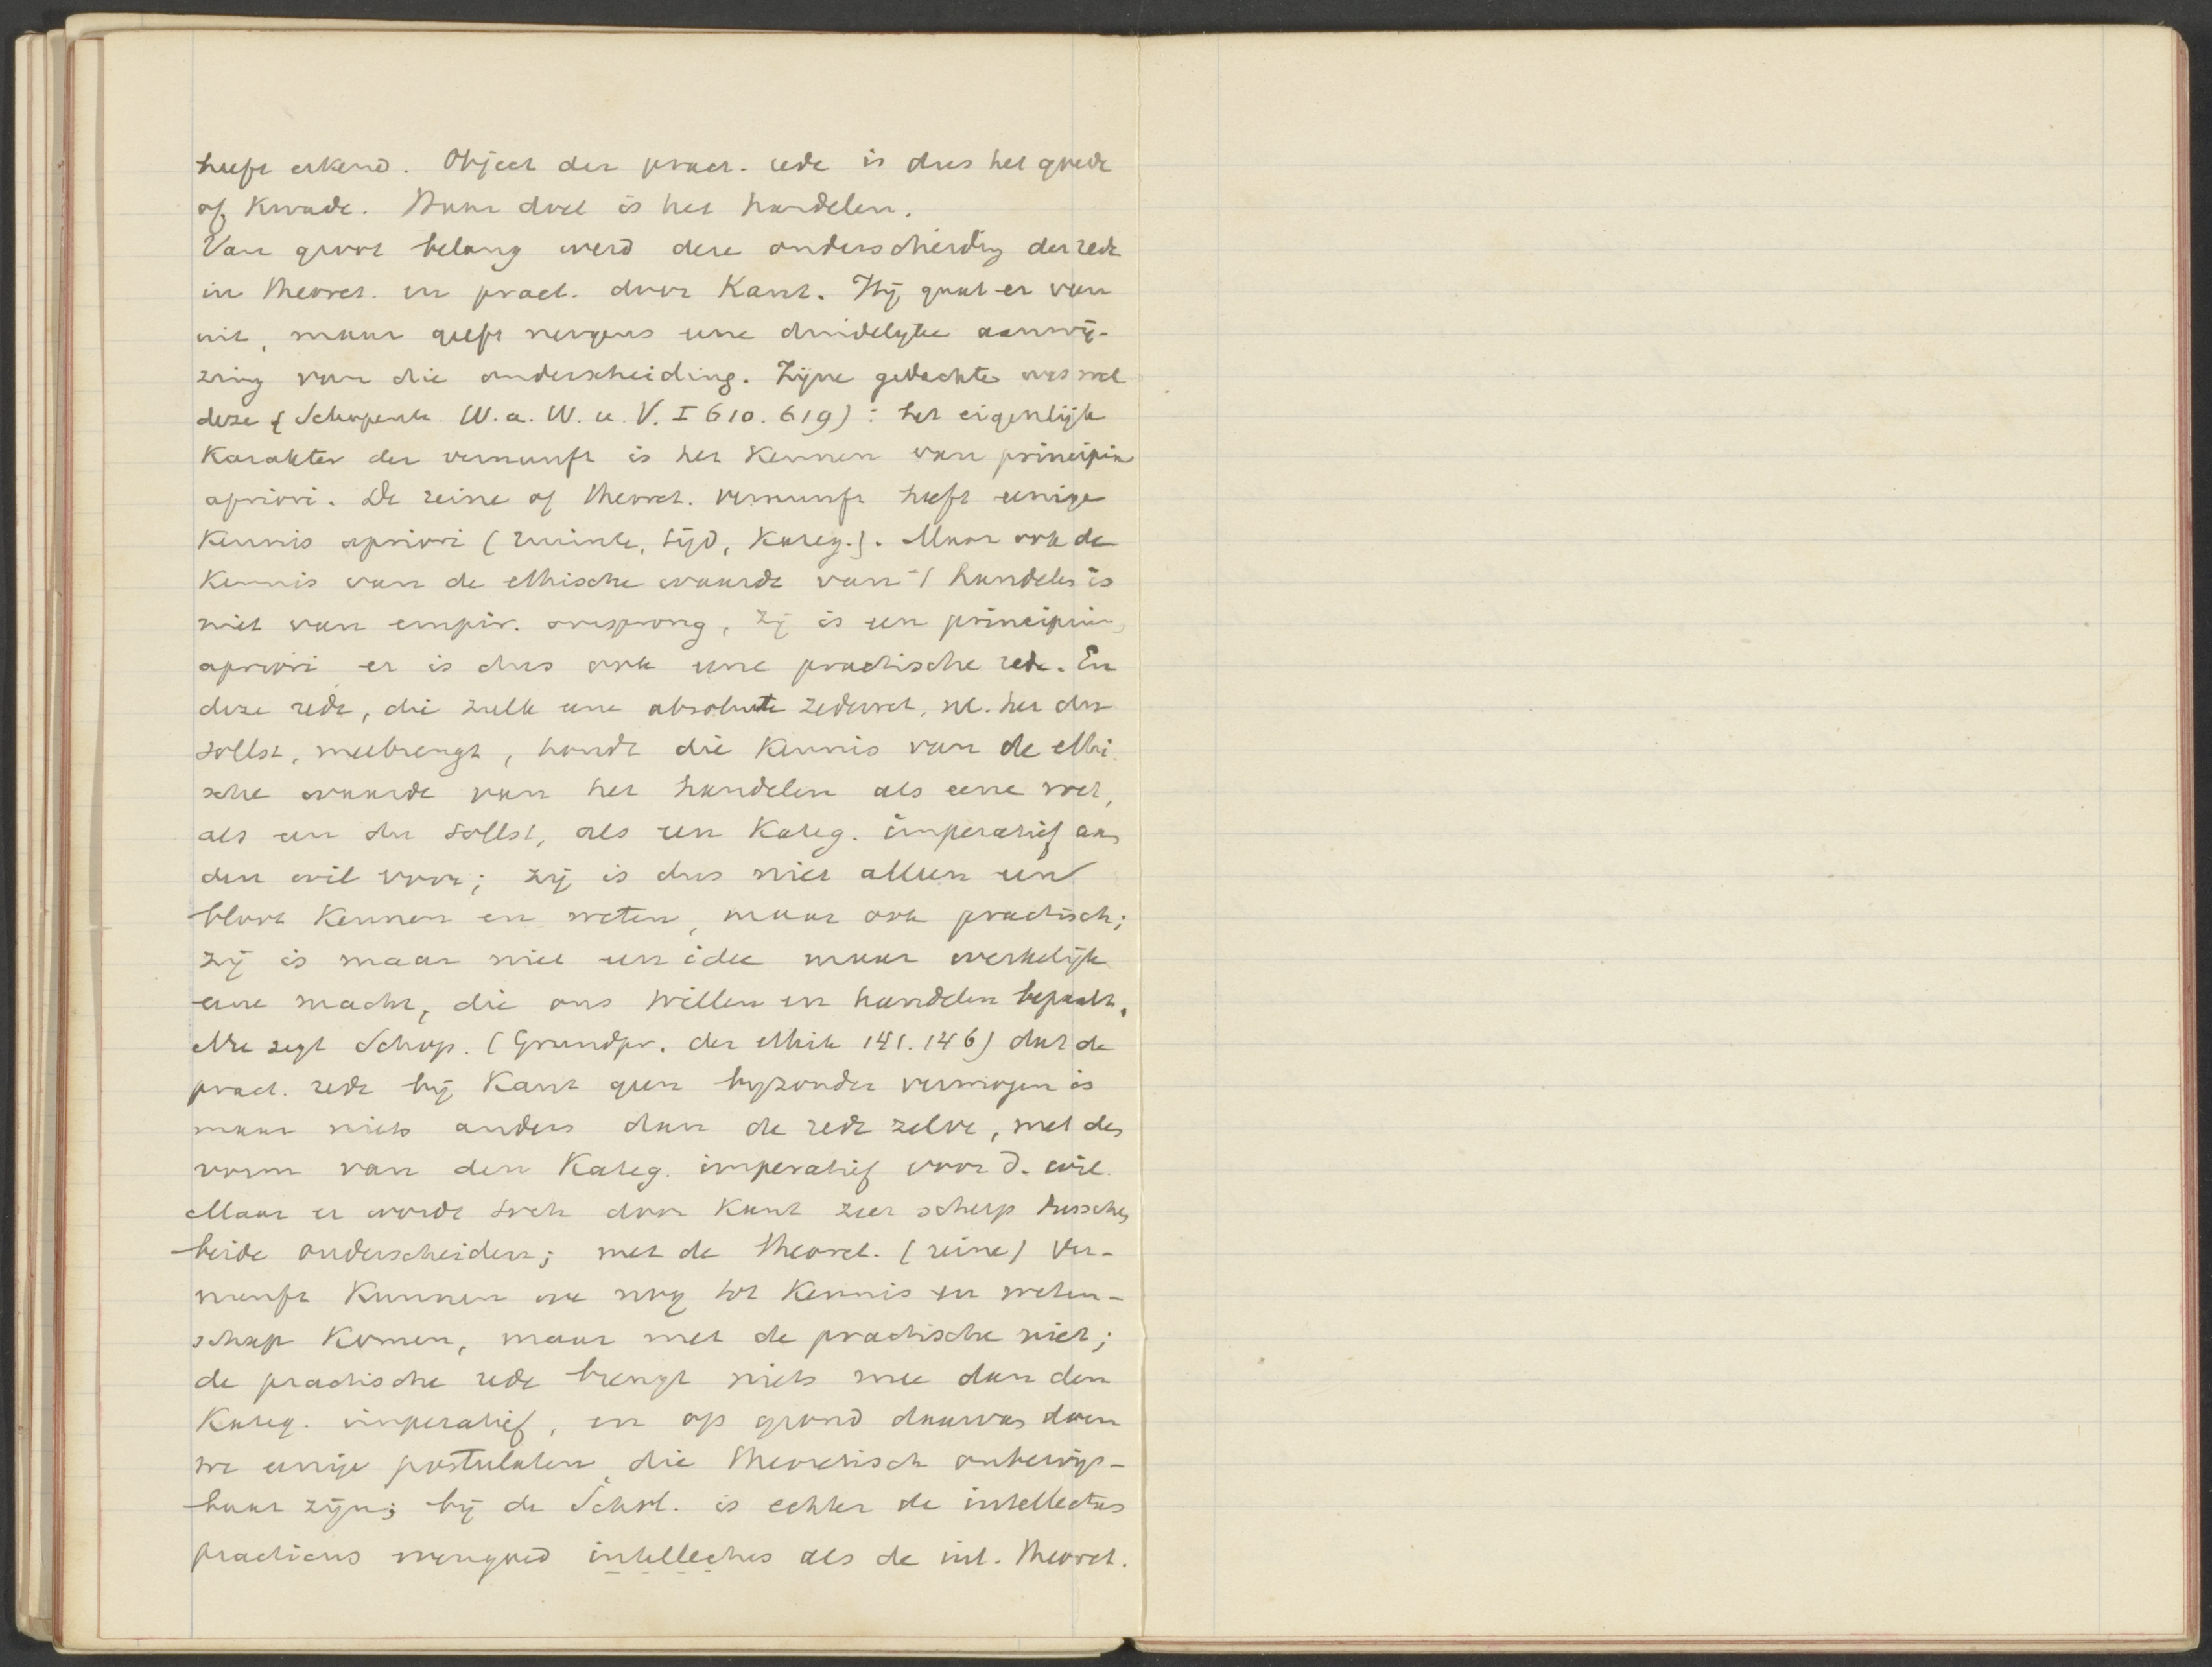 heeft erkend. Object der pract. rede is dus het goede
of kwade. Haar doel is het handelen.
Van groot belang werd deze onderscheiding der rede
in theoret. en pract. door Kant. Hij gaat er van
uit, maar geeft nergens eene duidelyke aanwij-
zing van die onderscheiding. Zijne gedachte was wel
deze (Schopenh. W. a. W. u. V. I 610. 619): het eigenlijk
karakter der vernunft is het kennen van principia
apriori. De reine of theoret. vernunft heeft eenige
kennis apriori (ruimte, tijd, kateg.). Maar ook de
kennis van de ethische waarde van 't handelen is
niet van empir. oorsprong, zij is een principium
apriori er is dus ook eene practische rede. En
deze rede, die zulk eene absolute zedewet, nl. het du
sollst, meebrengt, houdt die kennis van de ethi-
sche waarde van het handelen als eene wet,
als een du sollst, als een kateg. imperatief aan
den wil voor; zij is dus niet alleen een
bloot kennen en weten, maar ook practisch;
zij is maar niet een idee maar werkelijk
eene macht, die ons willen en handelen bepaalt.
Nu zegt Schop. (Grundpr. der Ethik 141. 146) dat de
pract. rede bij Kant geen byzonder vermogen is
maar niets anders dan de rede zelve, met den
vorm van den kateg. imperatief voor d. wil.
Maar er wordt toch door Kant zeer scherp tusschen
beide onderscheiden; met de theoret. (reine) Ver-
nunft kunnen we nog tot kennis en weten-
schap komen, maar met de practische niet;
de practische rede brengt niets mee dan den
kateg. imperatief, en op grond daarvan doen
we eenige postulaten, die theoretisch onbewijs-
baar zijn; bij de Schol. is echter de intellectus
practicus evengoed intellectus als de int. theoret.